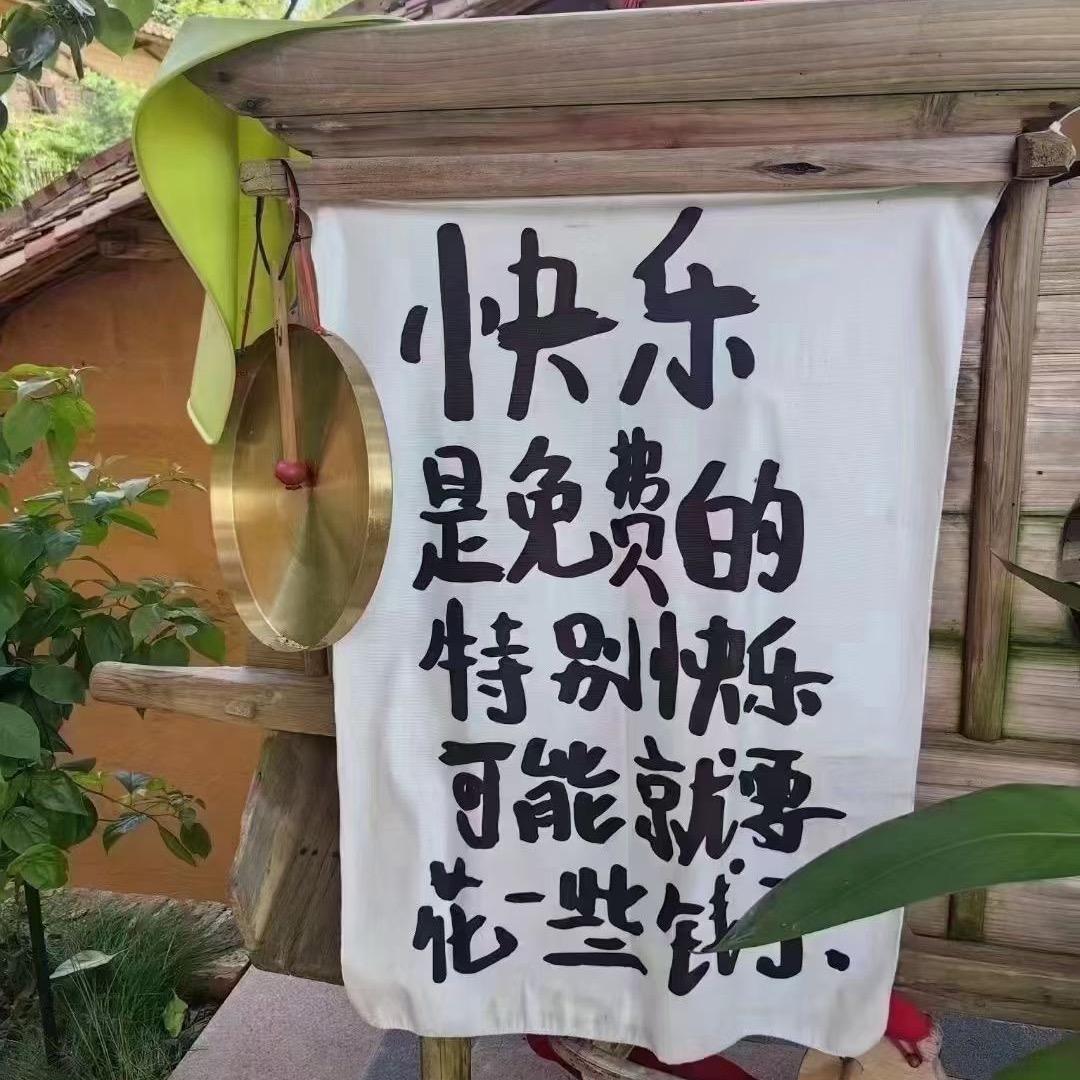 快乐
是免费的
特别快乐
可能就要
花一些钱了、